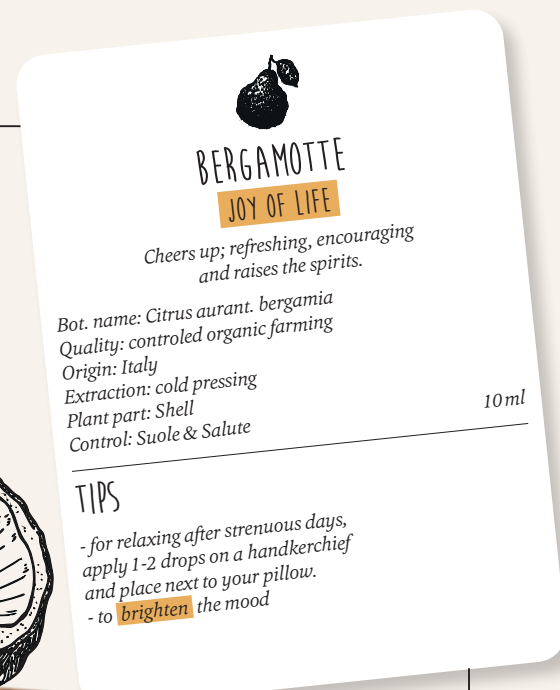 BERGAMOTTE
JOY OF LIFE
Cheers up; refreshing, encouraging
and raises the spirits.
Bot. name: Citrus aurant. bergamia
Quality: controled organic farming
Origin: Italy
Extraction: cold pressing
Plant part: Shell
Control: Suole & Salute
10 ml
TIPS
- for relaxing after strenuous days,
apply 1-2 drops on a handkerchief
and place next to your pillow.
- to brighten the mood